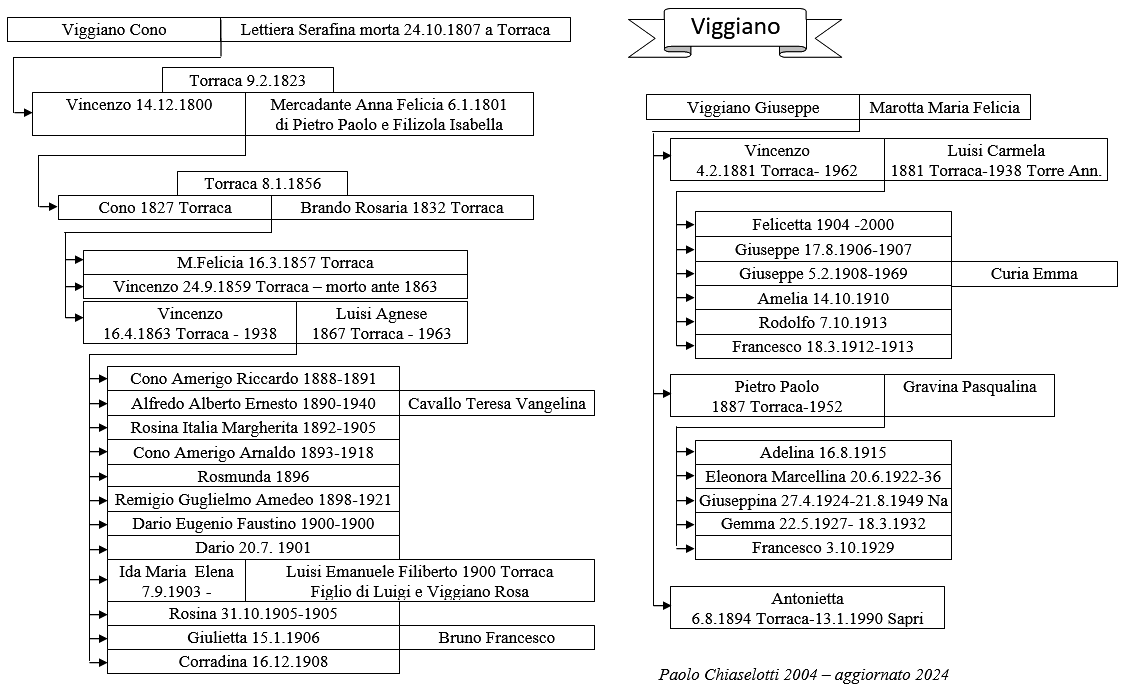 Viggiano Cono
Lettiera Serafina morta 24.10.1807 a Torraca
Torraca 9.2.1823
Vincenzo 14.12.1800
Mercadante Anna Felicia 6.1.1801
di Pietro Paolo e Filizola Isabella
Torraca 8.1.1856
Cono 1827 Torraca
Brando Rosaria 1832 Torraca
M.Felicia 16.3.1857 Torraca
Vincenzo 24.9.1859 Torraca – morto ante 1863
Vincenzo
16.4.1863 Torraca - 1938
Luisi Agnese
1867 Torraca - 1963
Cono Amerigo Riccardo 1888-1891
Alfredo Alberto Ernesto 1890-1940
Cavallo Teresa Vangelina
Rosina Italia Margherita 1892-1905
Cono Amerigo Arnaldo 1893-1918
Rosmunda 1896
Remigio Guglielmo Amedeo 1898-1921
Dario Eugenio Faustino 1900-1900
Dario 20.7. 1901
Ida Maria  Elena
7.9.1903 -
Luisi Emanuele Filiberto 1900 Torraca
Figlio di Luigi e Viggiano Rosa
Rosina 31.10.1905-1905
Giulietta 15.1.1906
Bruno Francesco
Corradina 16.12.1908
Viggiano
Viggiano Giuseppe
Marotta Maria Felicia
Vincenzo
4.2.1881 Torraca- 1962
Luisi Carmela
1881 Torraca-1938 Torre Ann.
Felicetta 1904 -2000
Giuseppe 17.8.1906-1907
Giuseppe 5.2.1908-1969
Curia Emma
Amelia 14.10.1910
Rodolfo 7.10.1913
Francesco 18.3.1912-1913
Pietro Paolo
1887 Torraca-1952
Gravina Pasqualina
Adelina 16.8.1915
Eleonora Marcellina 20.6.1922-36
Giuseppina 27.4.1924-21.8.1949 Na
Gemma 22.5.1927- 18.3.1932
Francesco 3.10.1929
Antonietta
6.8.1894 Torraca-13.1.1990 Sapri
Paolo Chiaselotti 2004 – aggiornato 2024